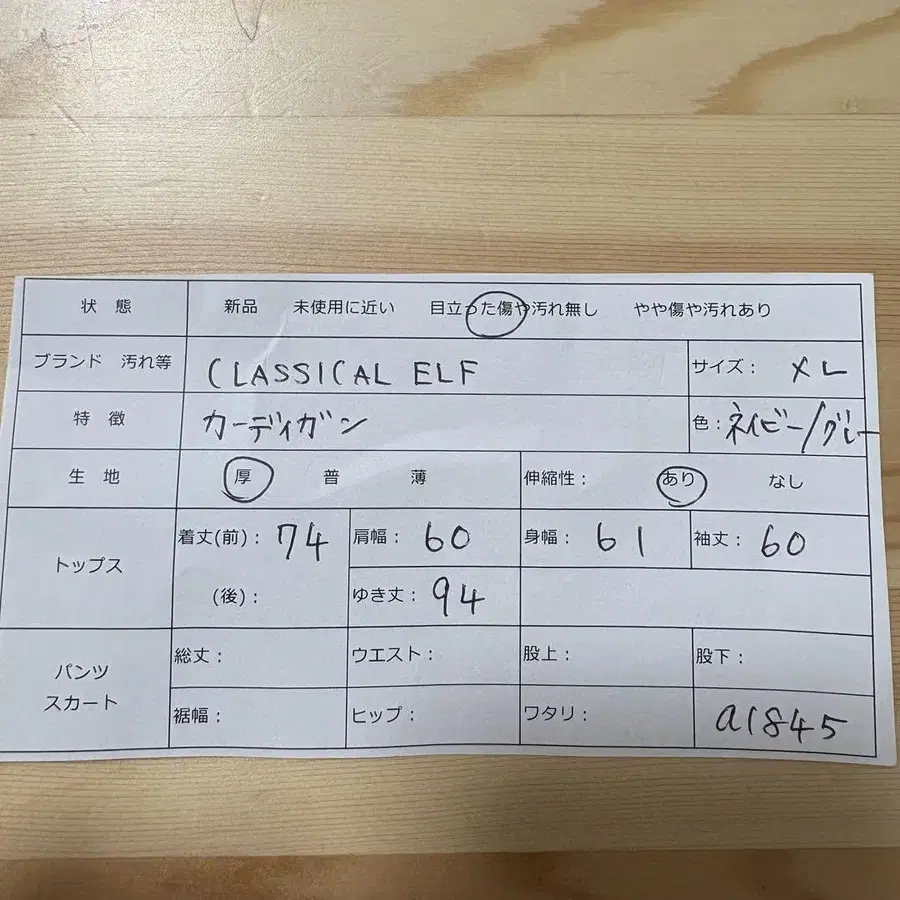 状 態 新品 未使用に近い 目立った傷や汚れ無し やや傷や汚れあり
ブランド 汚れ等 CLASSICAL ELF サイズ: XL
特 徴 カーディガン 色:ネイビー/グレー
生 地 厚 普 薄 伸縮性: あり なし
トップス 着丈(前): 74 肩幅: 60 身幅: 61 袖丈: 60
(後): ゆき丈: 94
パンツ スカート 総丈: ウエスト: 股上: 股下:
裾幅: ヒップ: ワタリ: a1845